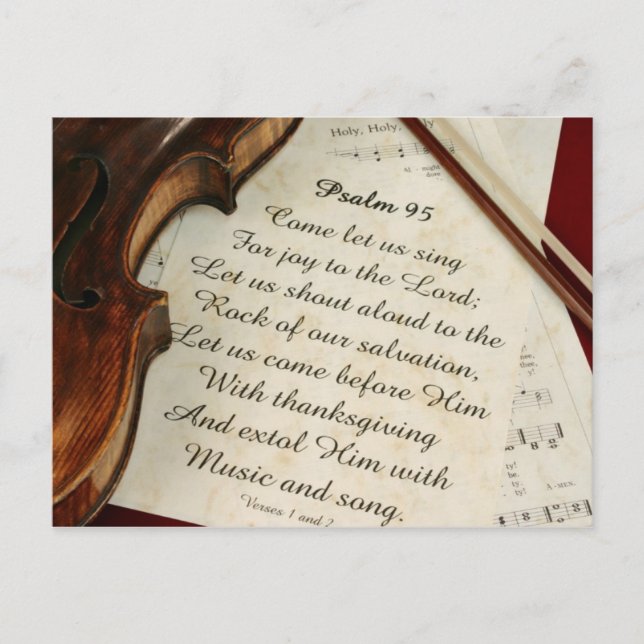 Holy, Holy, Holy
Al - might
dore
Psalm 95
Come let us sing
For joy to the Lord;
Let us shout aloud to the
Rock of our salvation,
Let us come before Him
With thanksgiving
And extol Him with
Music and song.
Verses 1 and 2
ty!
be,
ty!
A-MEN.